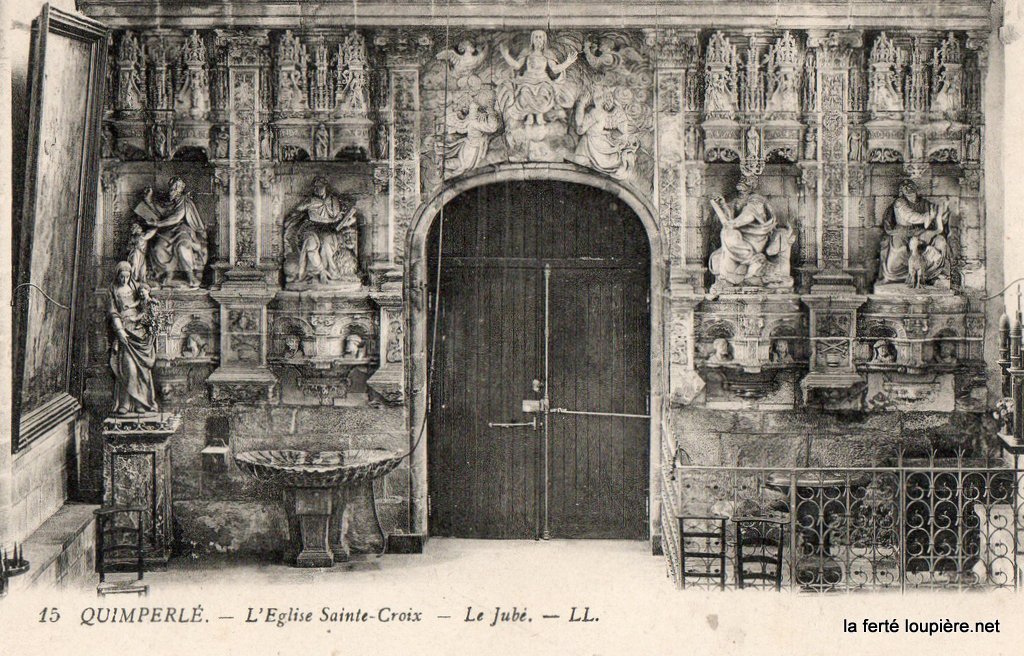 15 QUIMPERLÉ. — L'Eglise Sainte-Croix — Le Jubé. — LL.
la ferté loupière.net